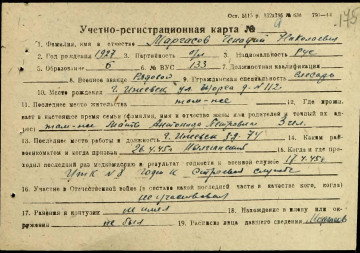 175
Учетно-регистрационная карта №
1. Фамилия, имя и отчество Маргасов Геннадий Николаевич
2. Год рождения 1927 3. Партийность б/п 5. Национальность Рус
5. Образование 6 6. № ВУС 133 7. Должностная квалификация
8. Военное звание Рядовой 9. Гражданская специальность Слесарь
10. Место рождения г. Ижевск ул. Горка д. № 112
11. Последнее место жительства там-же 12. Где проживает
в настоящее время семья (фамилия, имя и отчество жены или родителей и точный их адрес)
там-же Мать
13. Последнее место работы и должность г. Ижевск з-д 74 14. Каким райвоенкоматом
и когда призван 15. Когда и где проходил
последний раз медкомиссию и результат годности к военной службе
Годен к строевой службе
16. Участие в Отечественной войне (в составе какой последней части в качестве кого, когда)
не участвовал
17. Ранения и контузии не имел 18. Нахождение в плену или окружении
не был 19. Расписка лица давшего сведения